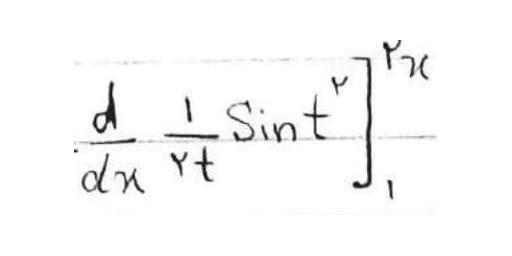 d/dx ۱/۲t Sin t^۲ ]_۱^۲x